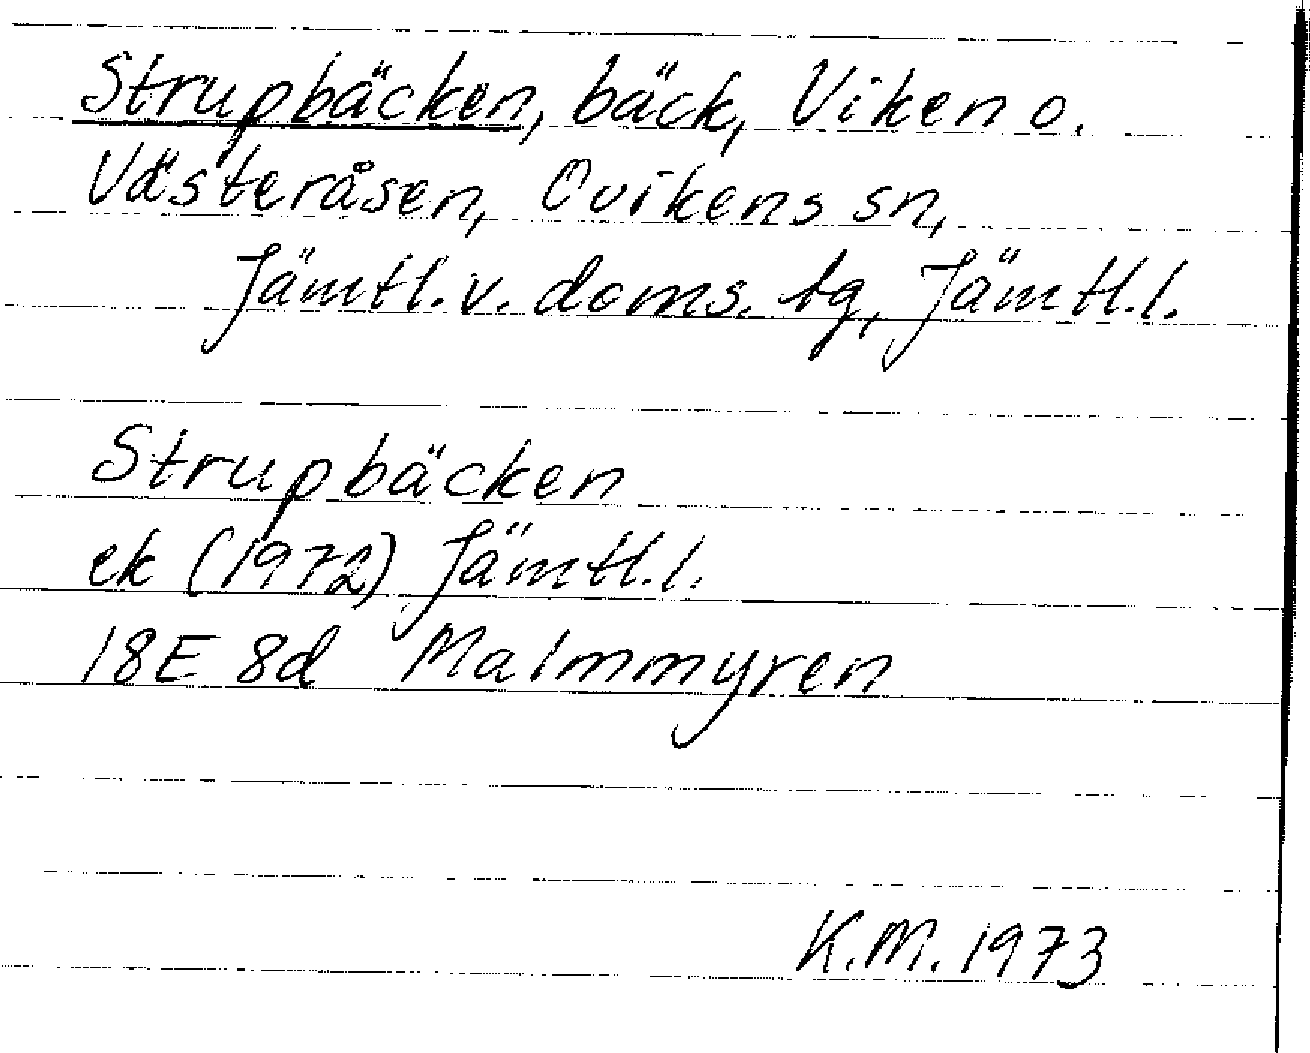 Strupbäcken, bäck, Viken o.
Västeråsen, Ovikens sn,
Jämtl. v. doms. tg, Jämtl. l.
Strupbäcken
ek (1972) Jämtl. l.
18E 8d Malmmyren
K.M. 1973